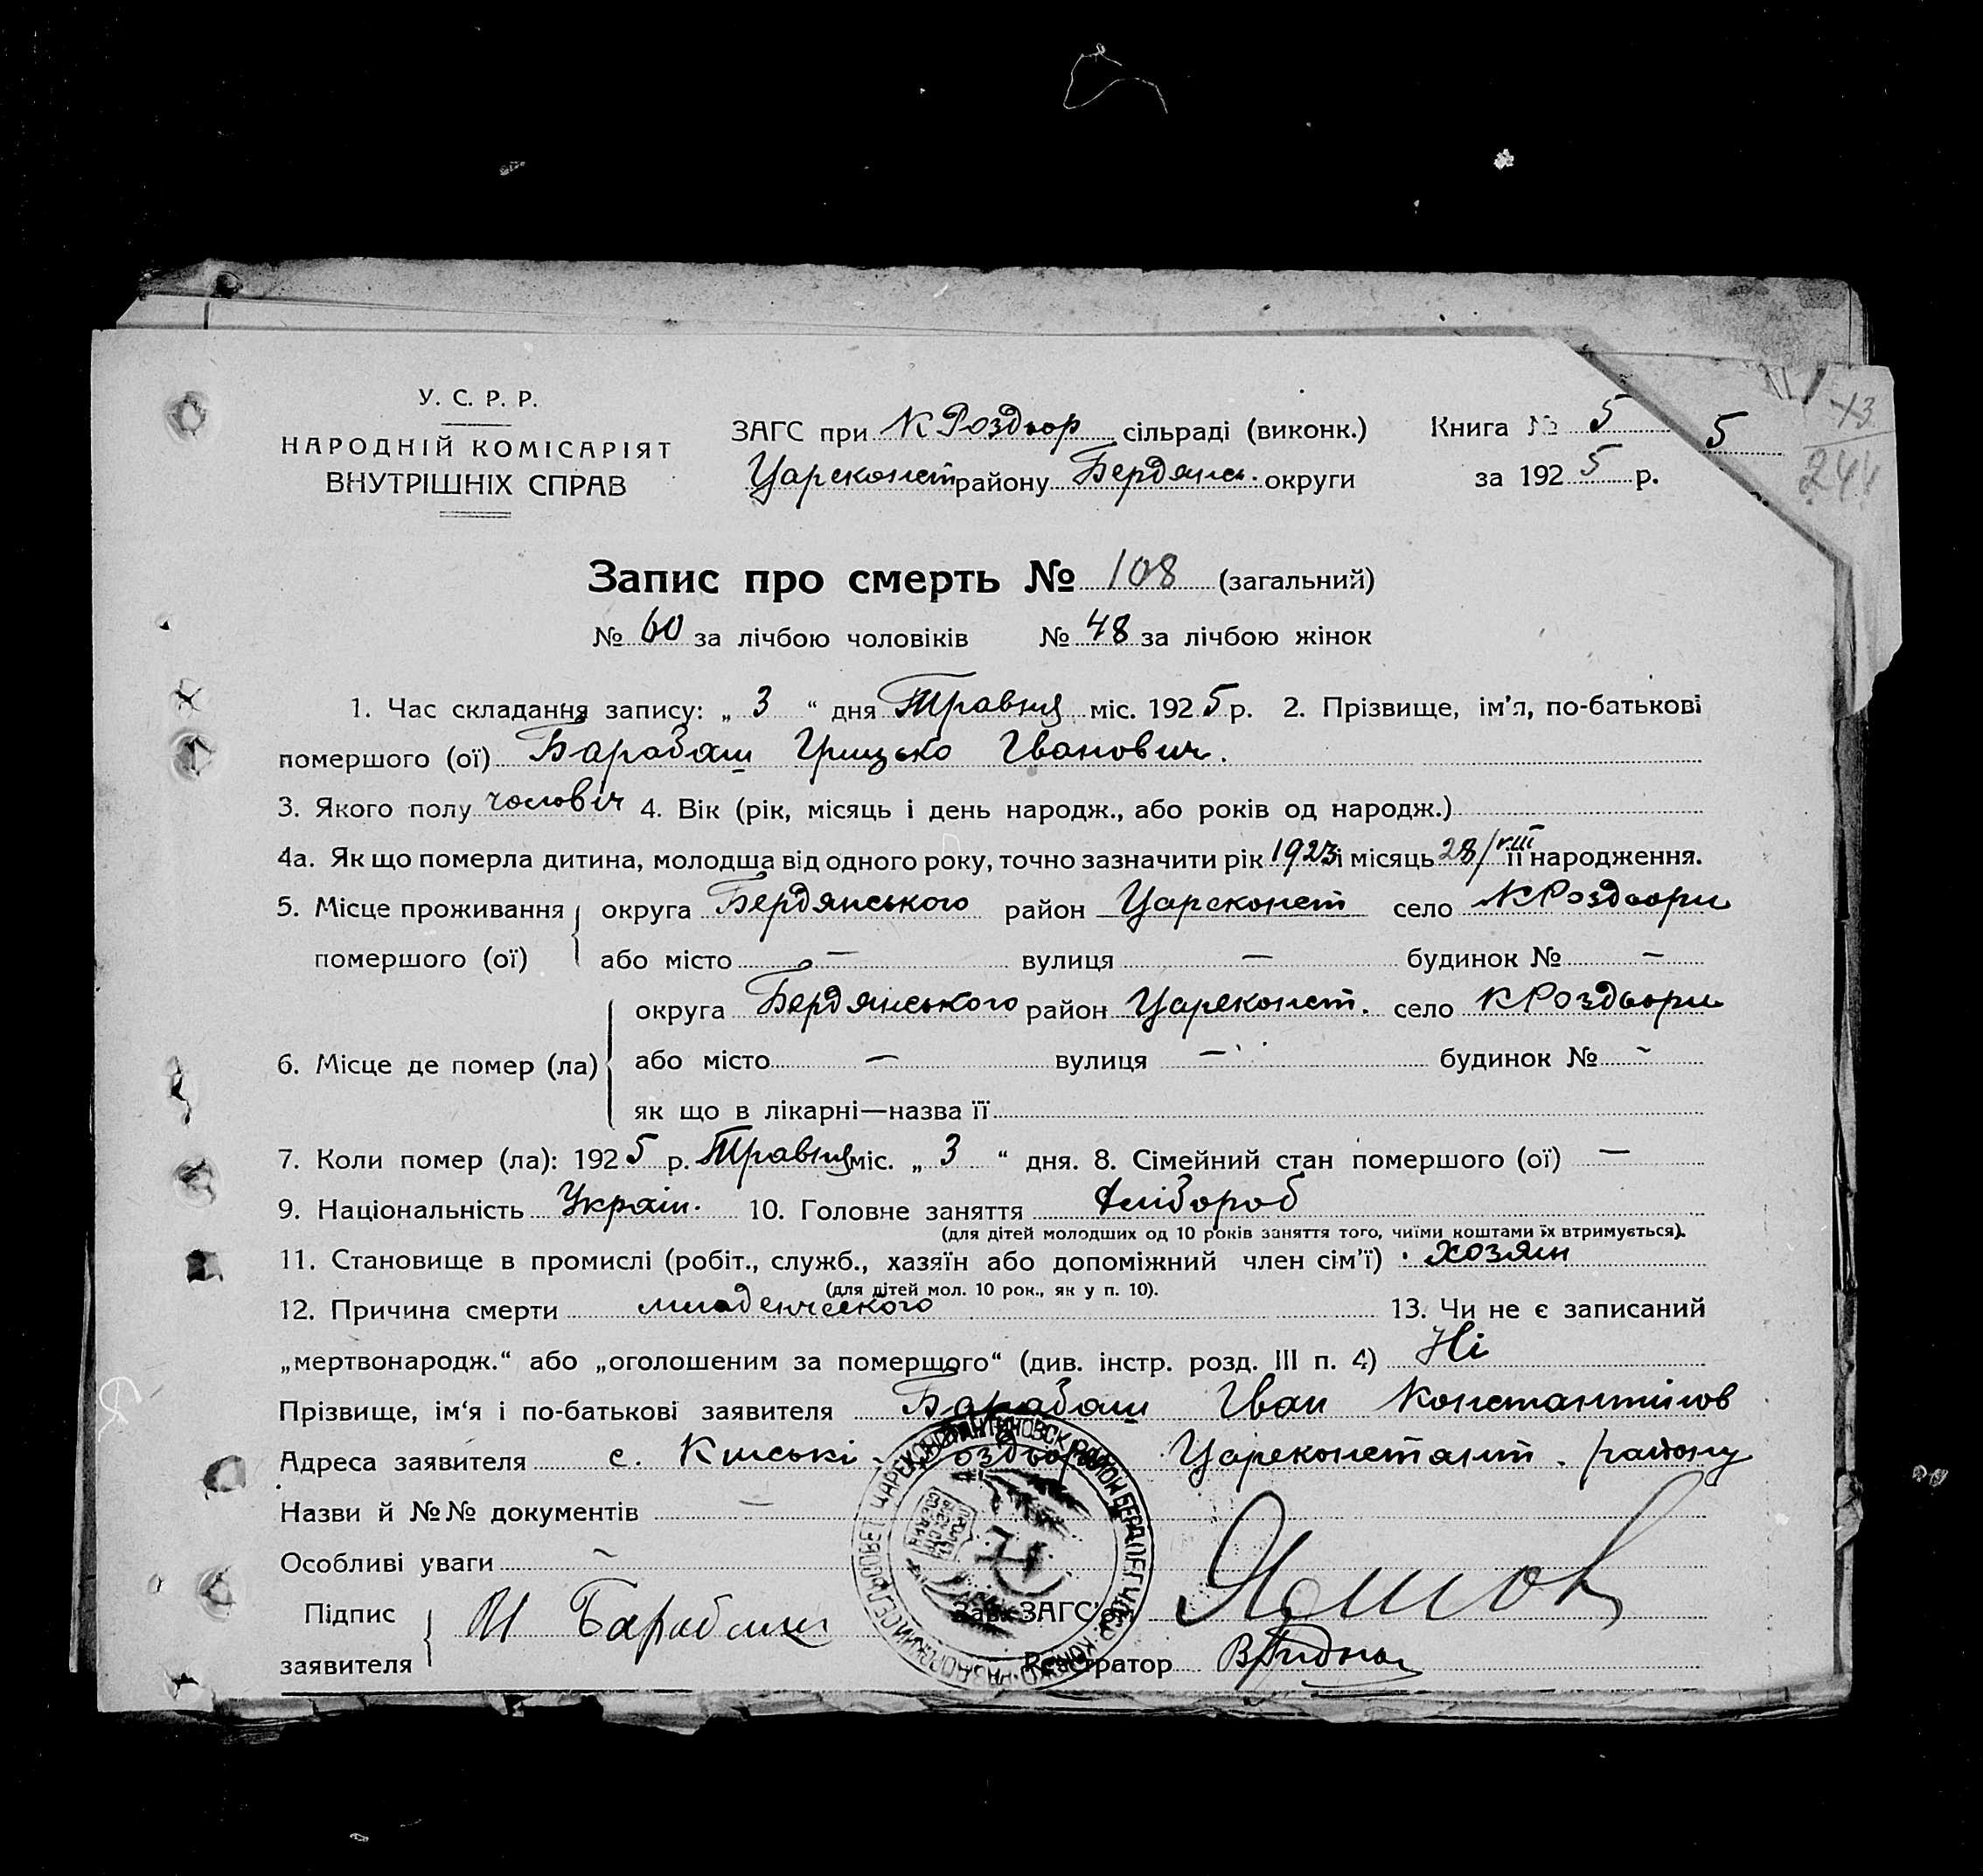 У. С. Р. Р.
НАРОДНІЙ КОМІСАРІЯТ
ВНУТРІШНІХ СПРАВ
ЗАГС при К Роздор сільраді (виконк.)
Царсконст району Бердянс. округи
Книга № 5
за 1925 р.
5
43
244
Запис про смерть № 108 (загальний)
№ 60 за лічбою чоловіків № 48 за лічбою жінок
1. Час складання запису: „ 3 “ дня Травня міс. 1925 р. 2. Прізвище, ім'я, по-батькові
помершого (ої) Барабаш Грицько Іванович.
3. Якого полу чоловіч 4. Вік (рік, місяць і день народж., або років од народж.)
4а. Як що померла дитина, молодша від одного року, точно зазначити рік 1923 і місяць 28/VIII її народження.
5. Місце проживання округа Бердянського район Царсконст село К Роздори
помершого (ої) або місто — вулиця — будинок № —
округа Бердянського район Царсконст. село К Роздори
6. Місце де помер (ла) або місто — вулиця — будинок № -
як що в лікарні—назва її
7. Коли помер (ла): 1925 р. Травня міс. „ 3 “ дня. 8. Сімейний стан помершого (ої) —
9. Національність Україн. 10. Головне заняття Хлібороб
(для дітей молодших од 10 років заняття того, чиїми коштами їх втримується).
11. Становище в промислі (робіт., служб., хазяїн або допоміжний член сім'ї) хозяин
(для дітей мол. 10 рок., як у п. 10).
12. Причина смерти младенческого 13. Чи не є записаний
„мертвонародж.“ або „оголошеним за померщого“ (див. інстр. розд. III п. 4) Ні
Прізвище, ім'я і по-батькові заявителя Барабаш Іван Константинов
Адреса заявителя с. Кінські Роздори Царсконстант. району
Назви й №№ документів —
Особливі уваги -
Підпис
заявителя И Барабаш
Зав. ЗАГС'ом
Реєстратор